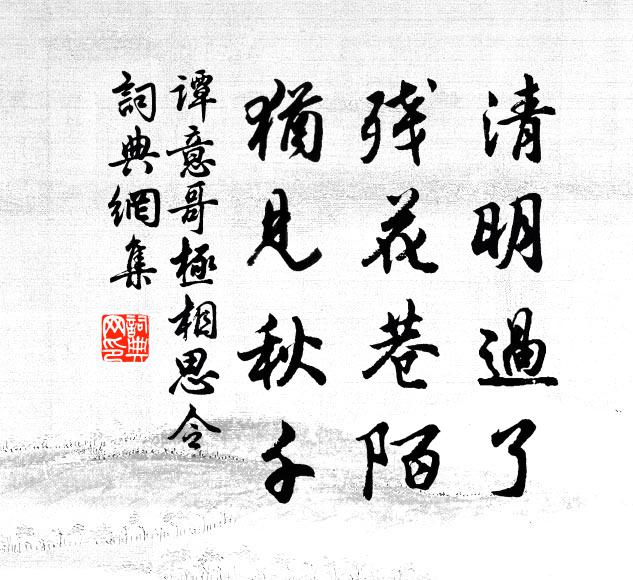 清明過了
残花巷陌
猶見秋千
谭意哥極相思令
詞典網集
詞典
网印